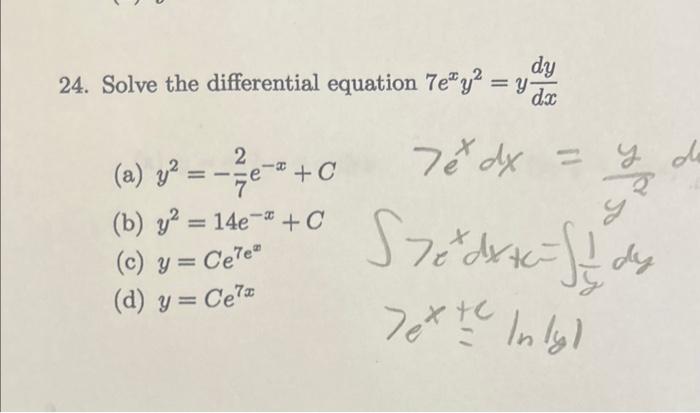 24. Solve the differential equation 7eˣy² = y dy/dx
(a) y² = -2/7 e⁻ˣ + C
(b) y² = 14e⁻ˣ + C
(c) y = Ce^(7eˣ)
(d) y = Ce^(7x)
7eˣ dx = y/y² d
∫7eˣdx+c = ∫1/y dy
7eˣ+c = ln|y|